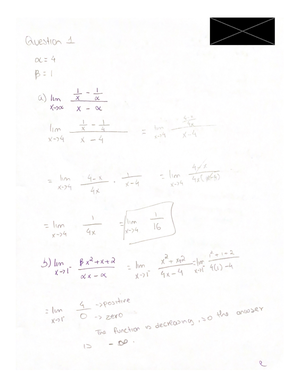 Question 1
α = 4
β = 1
a) lim x→α (1/x - 1/α) / (x - α)
lim x→4 (1/x - 1/4) / (x - 4) = lim x→4 / (x - 4)
= lim x→4 (4-x)/4x · 1/(x-4) = lim x→4
= lim x→4 1/4x = lim x→4 1/16
b) lim x→1⁻ (βx² + x + 2) / (αx - α) = lim x→1⁻ (x² + x + 2) / (4x - 4) = lim x→1⁻ (1² + 1 + 2) / (4(1) - 4)
= lim x→1⁻ 4/0 → positive → zero
The function is decreasing, so the answer
is - ∞.
2